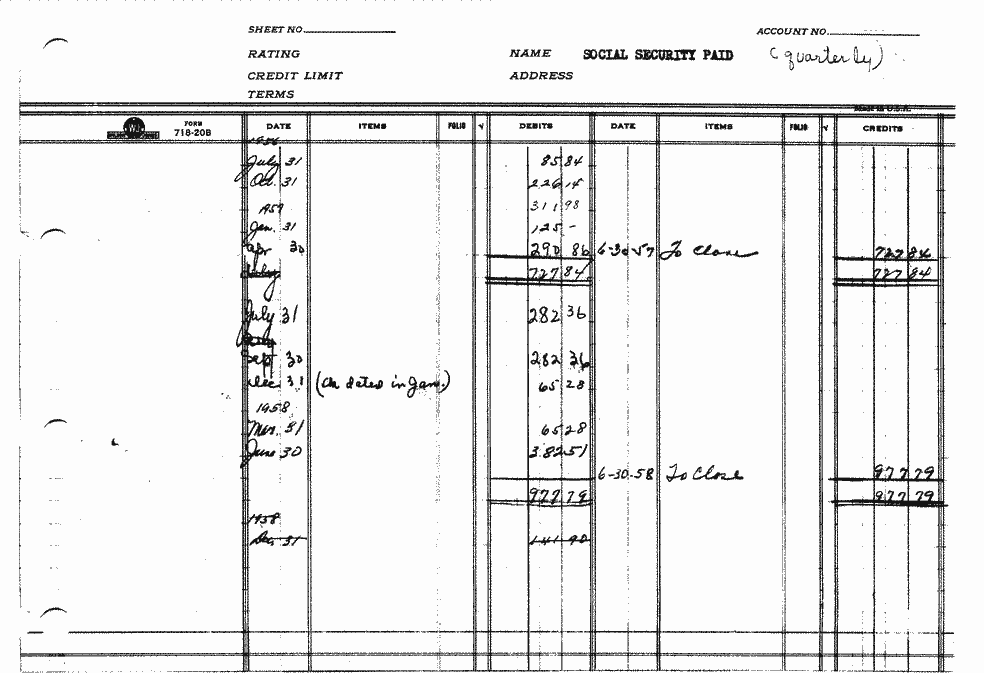 SHEET NO. ACCOUNT NO.
RATING NAME SOCIAL SECURITY PAID (quarterly)
CREDIT LIMIT ADDRESS
TERMS
MADE IN U.S.A.
FORM 718-20B DATE ITEMS FOLIO √ DEBITS DATE ITEMS FOLIO √ CREDITS
1956
July 31 85 84
Oct. 31 226 14
311 98
1957
Jan. 31 125 -
Apr 30 290 86 6-30-57 To Close 727 84
July 727 84 727 84
July 31 282 36
Sept 30 282 36
Dec 31 (Ck dated in Jan.) 65 28
1958
Mar. 31 65 28
June 30 382 51
6-30-58 To Close 977 79
977 79 977 79
1958
Dec. 31 141 90